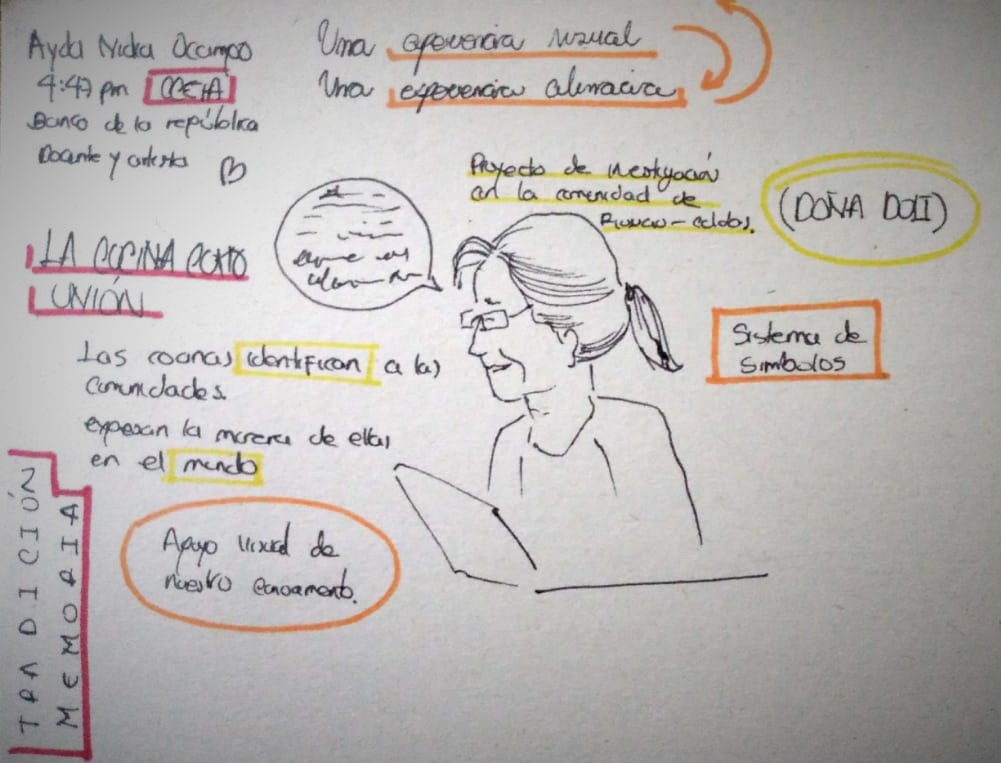 Ayda Nidia Ocampo
4:47 pm
Banco de la república
Docente y artista
Una experiencia visual
Una experiencia alimacira
Proyecto de investigación
con la comunidad de
(DOÑA DOLI)
LA COCINA COMO
UNIÓN
Las cocinas identifican a las
comunidades.
expresan la manera de ellas
en el mundo
Sistema de
Simbolos
Apoyo visual de
nuestro conocimiento.
TRADICIÓN
MEMORIA